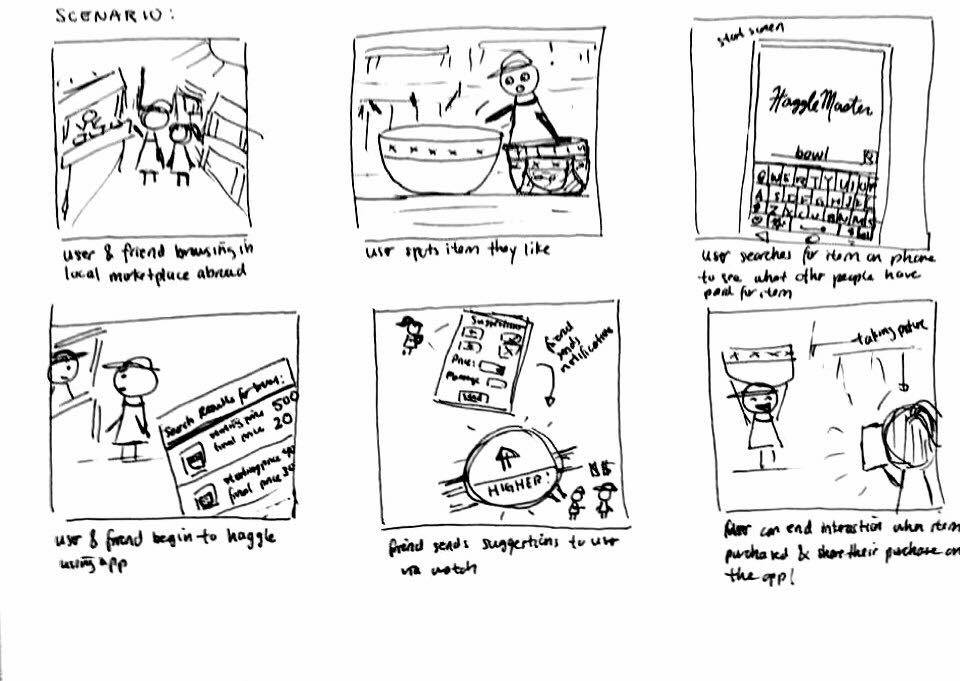 SCENARIO:
user & friend browsing in
local marketplace abroad
user spots item they like
start screen
HaggleMaster
bowl
user searches for item on phone
to see what other people have
paid for item
Search Results for
starting price 500
final price 20
starting price
final price
user & friend begin to haggle
using app
Suggestions
Price:
Message
Send
friend
sends
notification
HIGHER!
friend sends suggestions to user
via watch
taking picture
can end interaction when item
purchased & share their purchase on
the app!